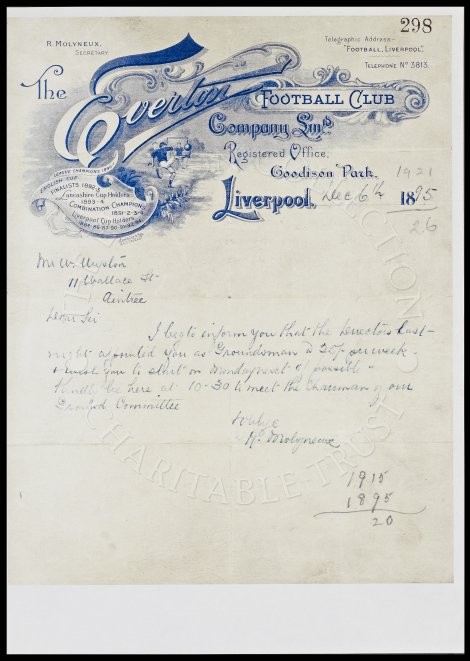 298
R. Molyneux,
Secretary.
Telegraphic Address—
"Football, Liverpool".
Telephone No 3813.
The Everton
Football Club
Company Lmtd.
Registered Office,
Goodison Park,
Liverpool, Dec 6th 1895
1921
26
League Champions
English Cup
Finalists 1892-3
Lancashire Cup Holders
1893-4
Combination Champions
1891-2-3-4
Liverpool Cup Holders
Mr W.
11 Wallace St
Aintree
Dear Sir
I beg to inform you that the Directors last-
night appointed you as Groundsman @ 30/- per week
& wish you to start on Monday next if possible -
Kindly be here at 10-30 to meet the Chairman of our
Ground Committee
Yours
R. Molyneux
1915
1895
20
CHARITABLE TRUST